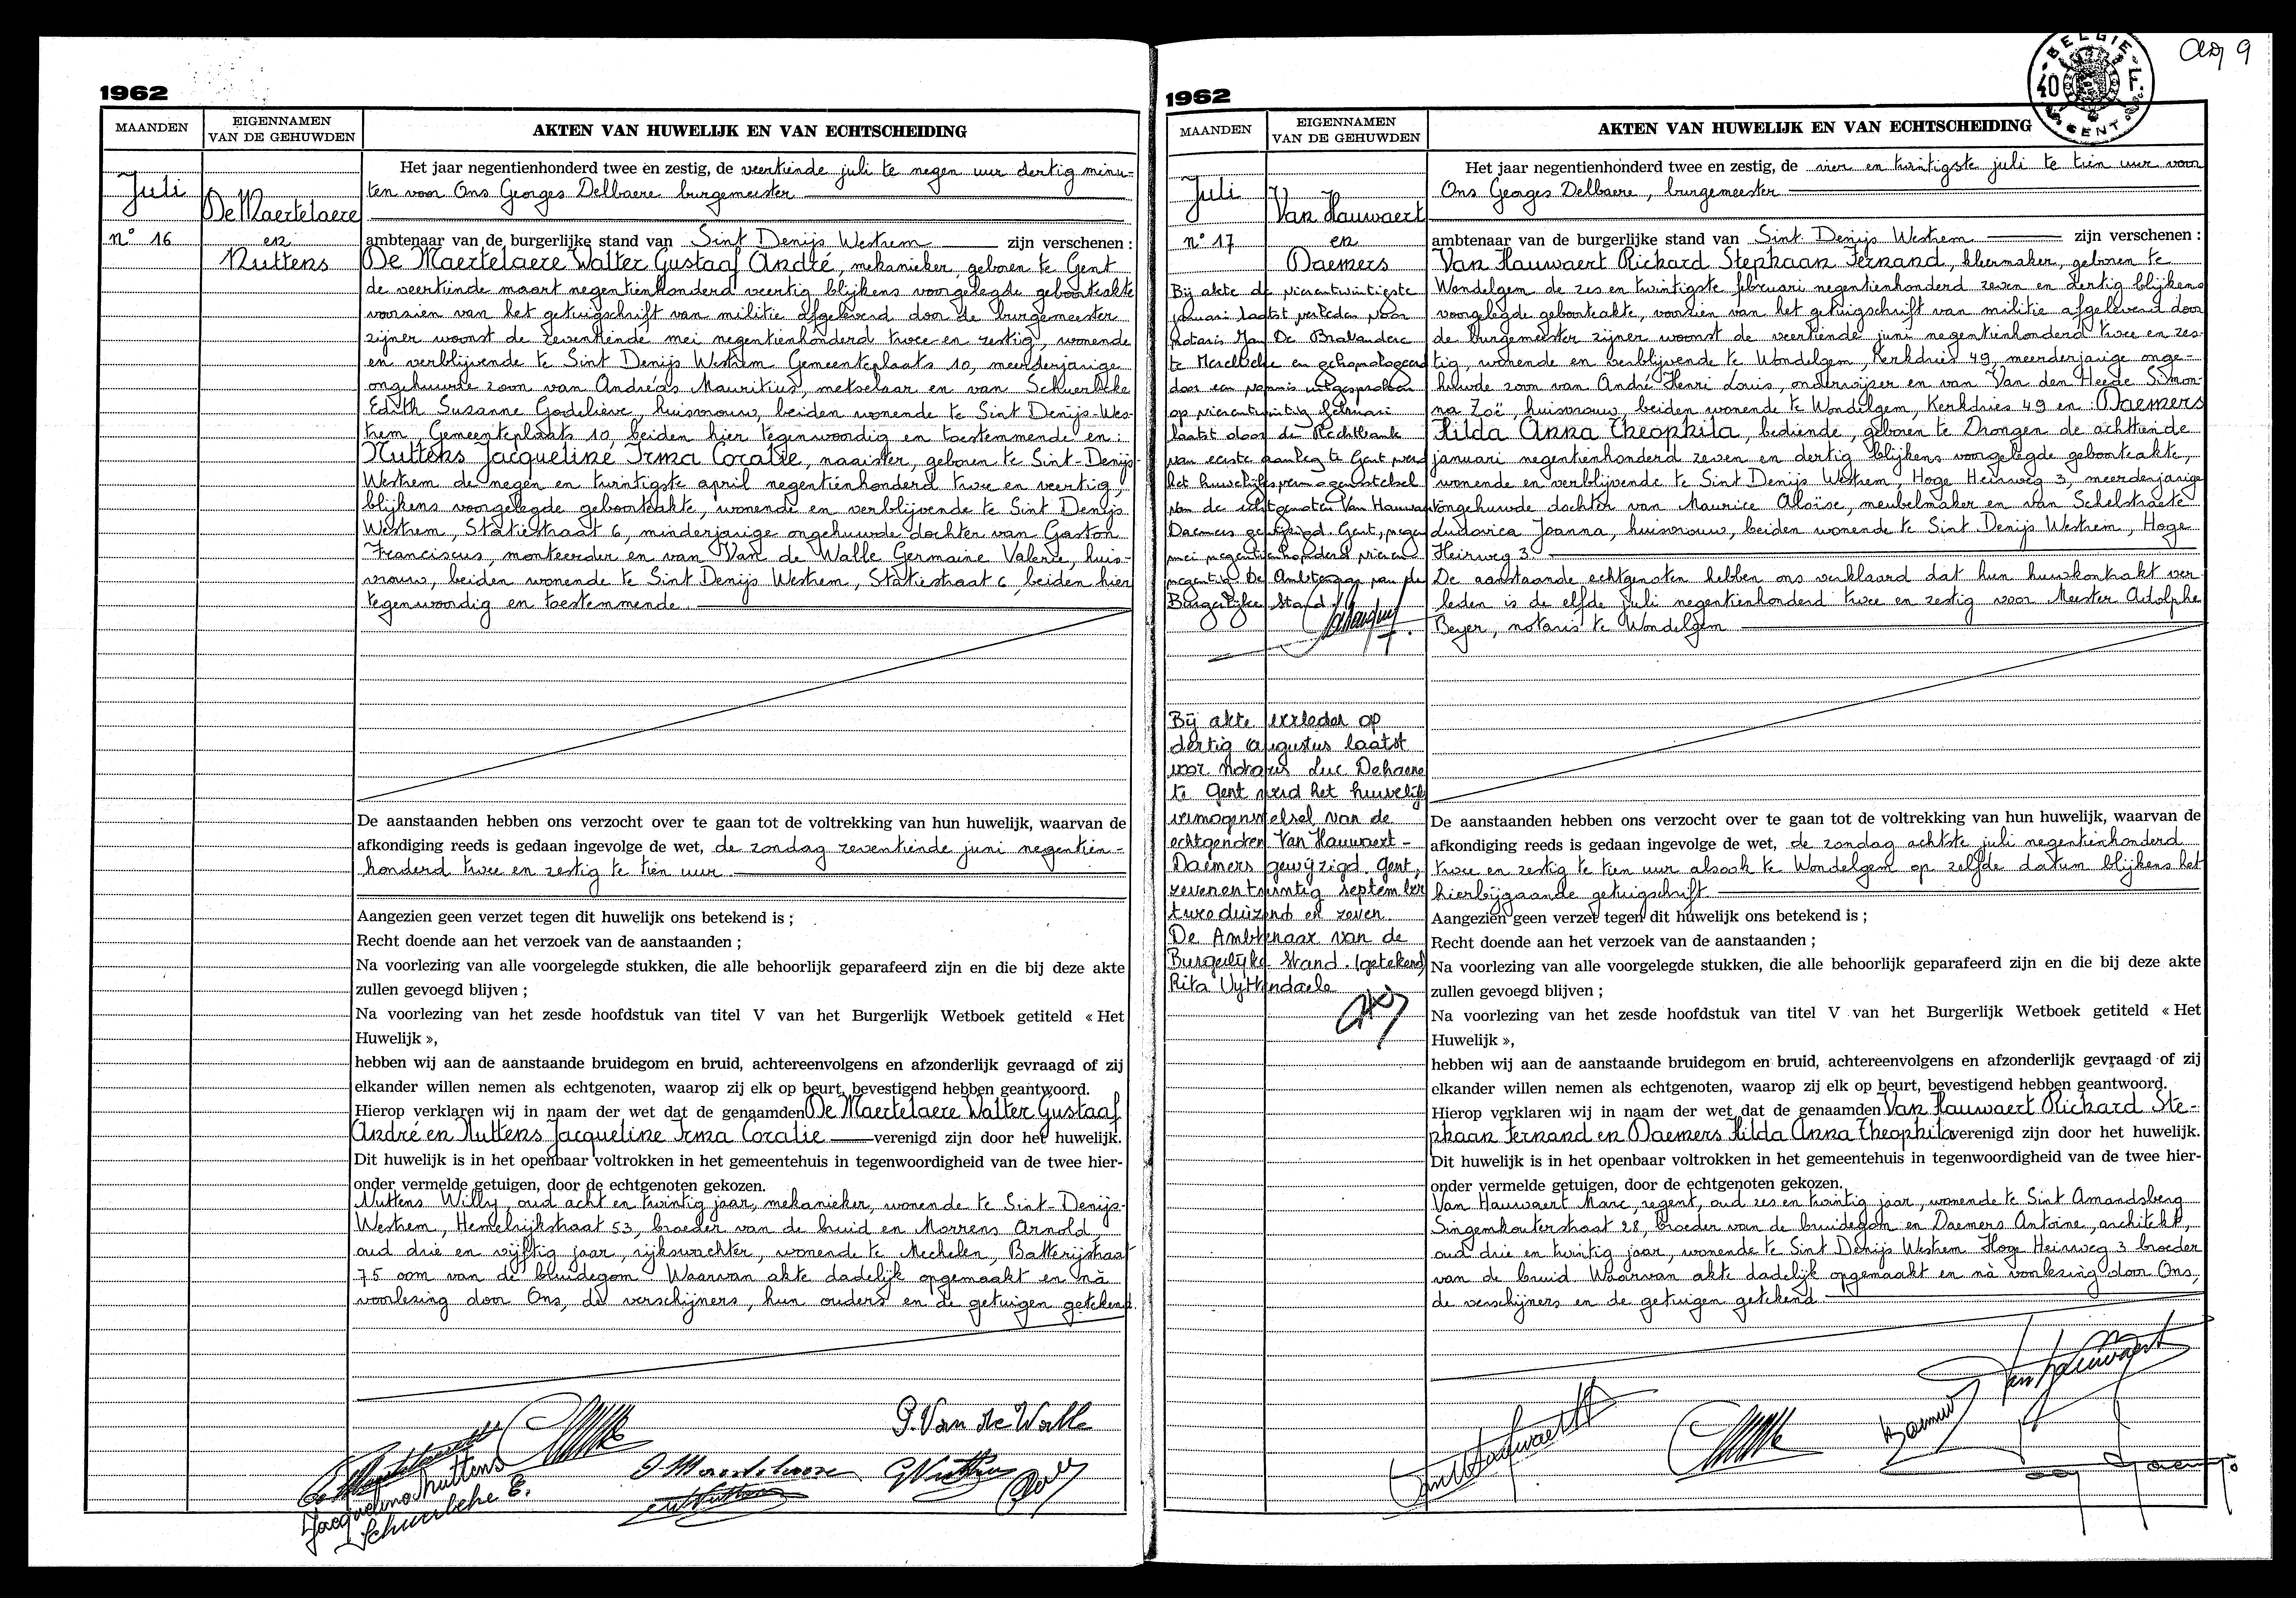 1962
MAANDEN
EIGENNAMEN
VAN DE GEHUWDEN
AKTEN VAN HUWELIJK EN VAN ECHTSCHEIDING
Juli
n° 16
De Maertelaere
en
Nuttens
Het jaar negentienhonderd twee en zestig, de veertiende juli te negen uur dertig minu-
ten voor Ons Georges Delbaere burgemeester
ambtenaar van de burgerlijke stand van Sint Denijs Westrem zijn verschenen :
De Maertelaere Walter Gustaaf André, mekanieker, geboren te Gent
de veertiende maart negentienhonderd veertig blijkens voorgelegde geboorteakte
voorzien van het getuigschrift van militie afgeleverd door de burgemeester
zijner woonst de zeventiende mei negentienhonderd twee en zestig, wonende
en verblijvende te Sint Denijs Westrem Gemeenteplaats 10, meerderjarige
ongehuwde zoon van Andréas Mauritius, metselaar en van Schuerbeke
Edith Suzanne Godelieve, huisvrouw, beiden wonende te Sint Denijs-Wes-
trem, Gemeenteplaats 10, beiden hier tegenwoordig en toestemmende en :
Nuttens Jacqueline Irma Coralie, naaister, geboren te Sint-Denijs-
Westrem de negen en twintigste april negentienhonderd twee en veertig,
blijkens voorgelegde geboorteakte, wonende en verblijvende te Sint Denijs
Westrem, Statiestraat 6, minderjarige ongehuwde dochter van Gaston
Franciscus, monteerder en van Van de Walle Germaine Valerie, huis-
vrouw, beiden wonende te Sint Denijs Westrem, Statiestraat 6, beiden hier
tegenwoordig en toestemmende.
De aanstaanden hebben ons verzocht over te gaan tot de voltrekking van hun huwelijk, waarvan de
afkondiging reeds is gedaan ingevolge de wet, de zondag zeventiende juni negentien-
honderd twee en zestig te tien uur
Aangezien geen verzet tegen dit huwelijk ons betekend is ;
Recht doende aan het verzoek van de aanstaanden ;
Na voorlezing van alle voorgelegde stukken, die alle behoorlijk geparafeerd zijn en die bij deze akte
zullen gevoegd blijven ;
Na voorlezing van het zesde hoofdstuk van titel V van het Burgerlijk Wetboek getiteld « Het
Huwelijk »,
hebben wij aan de aanstaande bruidegom en bruid, achtereenvolgens en afzonderlijk gevraagd of zij
elkander willen nemen als echtgenoten, waarop zij elk op beurt, bevestigend hebben geantwoord.
Hierop verklaren wij in naam der wet dat de genaamden De Maertelaere Walter Gustaaf
André en Nuttens Jacqueline Irma Coralie verenigd zijn door het huwelijk.
Dit huwelijk is in het openbaar voltrokken in het gemeentehuis in tegenwoordigheid van de twee hier-
onder vermelde getuigen, door de echtgenoten gekozen.
Nuttens Willy, oud acht en twintig jaar, mekanieker, wonende te Sint-Denijs-
Westrem, Hemelrijkstraat 53, broeder van de bruid en Morrens Arnold,
oud drie en vijftig jaar, rijkswachter, wonende te Mechelen, Batterijstraat
75 oom van de bruidegom. Waarvan akte dadelijk opgemaakt en nà
voorlezing door Ons, de verschijners, hun ouders en de getuigen getekend.
G. Van de Walle
Jacqueline Nuttens
Schuerbeke E.
BELGIE
40 F.
GENT
1962
MAANDEN
EIGENNAMEN
VAN DE GEHUWDEN
AKTEN VAN HUWELIJK EN VAN ECHTSCHEIDING
Juli
n° 17
Van Hauwaert
en
Daemers
Bij akte de vierentwintigste
januari laatst verleden voor
notaris Jan De Brabander
te Merelbeke en gehomologeerd
door een vonnis uitgesproken
op vierentwintig februari
laatst door de Rechtbank
van eerste aanleg te Gent werd
het huwelijksvermogenstelsel
van de echtgenoten Van Hauwaert
Daemers gewijzigd. Gent, negen
mei negentienhonderd vieren
negentig De Ambtenaar van de
Burgerlijke Stand
Bij akte verleden op
dertig augustus laatst
voor notaris Luc Dehaene
te Gent werd het huwelijks
vermogensstelsel van de
echtgenoten Van Hauwaert -
Daemers gewijzigd. Gent,
zevenentwintig september
tweeduizend en zeven.
De Ambtenaar van de
Burgerlijke Stand. (getekend)
Rita Uyttendaele
Het jaar negentienhonderd twee en zestig, de vier en twintigste juli te tien uur voor
Ons Georges Delbaere, burgemeester
ambtenaar van de burgerlijke stand van Sint Denijs Westrem zijn verschenen :
Van Hauwaert Rickard Stephaan Fernand, kleermaker, geboren te
Wondelgem de zes en twintigste februari negentienhonderd zeven en dertig blijkens
voorgelegde geboorteakte, voorzien van het getuigschrift van militie afgeleverd door
de burgemeester zijner woonst de veertiende juni negentienhonderd twee en zes-
tig, wonende en verblijvende te Wondelgem, Kerkdries 49, meerderjarige onge-
huwde zoon van André Henri Louis, onderwijzer en van Van den Heede Simon-
na Zoë, huisvrouw, beiden wonende te Wondelgem, Kerkdries 49 en : Daemers
Hilda Anna Theophila, bediende, geboren te Drongen de achttiende
januari negentienhonderd zeven en dertig blijkens voorgelegde geboorteakte,
wonende en verblijvende te Sint Denijs Westrem, Hoge Heirweg 3, meerderjarige
ongehuwde dochter van Maurice Aloïse, meubelmaker en van Schelstraete
Ludovica Joanna, huisvrouw, beiden wonende te Sint Denijs Westrem, Hoge
Heirweg 3.
De aanstaande echtgenoten hebben ons verklaard dat hun huwkontrakt ver-
leden is de elfde juli negentienhonderd twee en zestig voor Meester Adolphe
Beyer, notaris te Wondelgem
De aanstaanden hebben ons verzocht over te gaan tot de voltrekking van hun huwelijk, waarvan de
afkondiging reeds is gedaan ingevolge de wet, de zondag achtste juli negentienhonderd
twee en zestig te tien uur alsook te Wondelgem op zelfde datum blijkens het
hierbijgaande getuigschrift.
Aangezien geen verzet tegen dit huwelijk ons betekend is ;
Recht doende aan het verzoek van de aanstaanden ;
Na voorlezing van alle voorgelegde stukken, die alle behoorlijk geparafeerd zijn en die bij deze akte
zullen gevoegd blijven ;
Na voorlezing van het zesde hoofdstuk van titel V van het Burgerlijk Wetboek getiteld « Het
Huwelijk »,
hebben wij aan de aanstaande bruidegom en bruid, achtereenvolgens en afzonderlijk gevraagd of zij
elkander willen nemen als echtgenoten, waarop zij elk op beurt, bevestigend hebben geantwoord.
Hierop verklaren wij in naam der wet dat de genaamden Van Hauwaert Rickard Ste-
phaan Fernand en Daemers Hilda Anna Theophila verenigd zijn door het huwelijk.
Dit huwelijk is in het openbaar voltrokken in het gemeentehuis in tegenwoordigheid van de twee hier-
onder vermelde getuigen, door de echtgenoten gekozen.
Van Hauwaert Marc, regent, oud zes en twintig jaar, wonende te Sint Amandsberg
Singemkouterstraat 28, broeder van de bruidegom en Daemers Antoine, architekt,
oud drie en twintig jaar, wonende te Sint Denijs Westrem Hoge Heirweg 3 broeder
van de bruid. Waarvan akte dadelijk opgemaakt en nà voorlezing door Ons,
de verschijners en de getuigen getekend